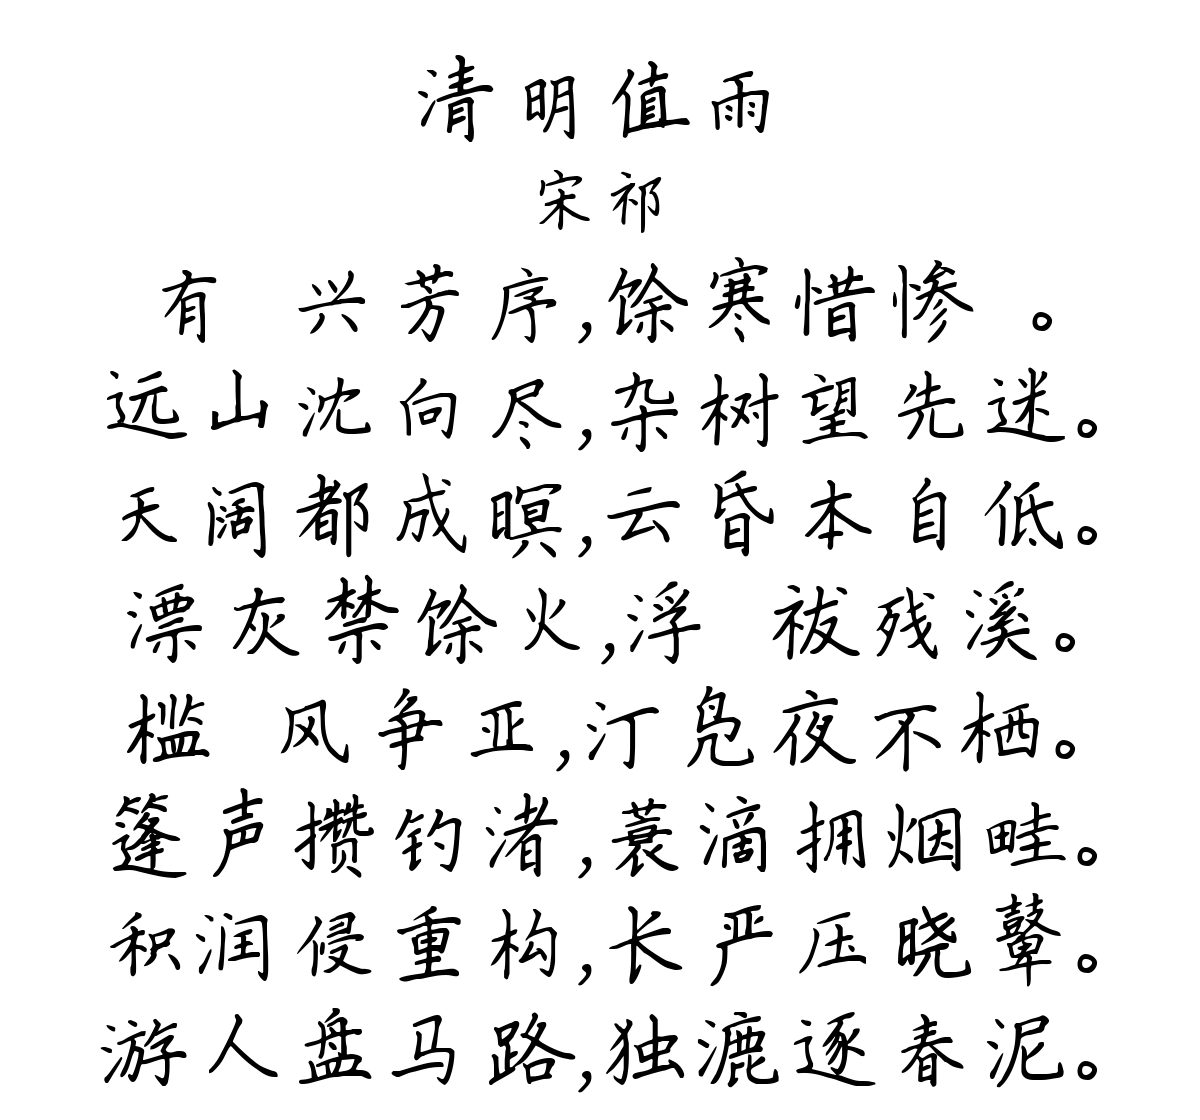 清明值雨
宋祁
有 兴芳序,馀寒惜惨 。
远山沈向尽,杂树望先迷。
天阔都成暝,云昏本自低。
漂灰禁馀火,浮 祓残溪。
槛 风争亚,汀凫夜不栖。
篷声攒钓渚,蓑滴拥烟畦。
积润侵重构,长严压晓鼙。
游人盘马路,独漉逐春泥。